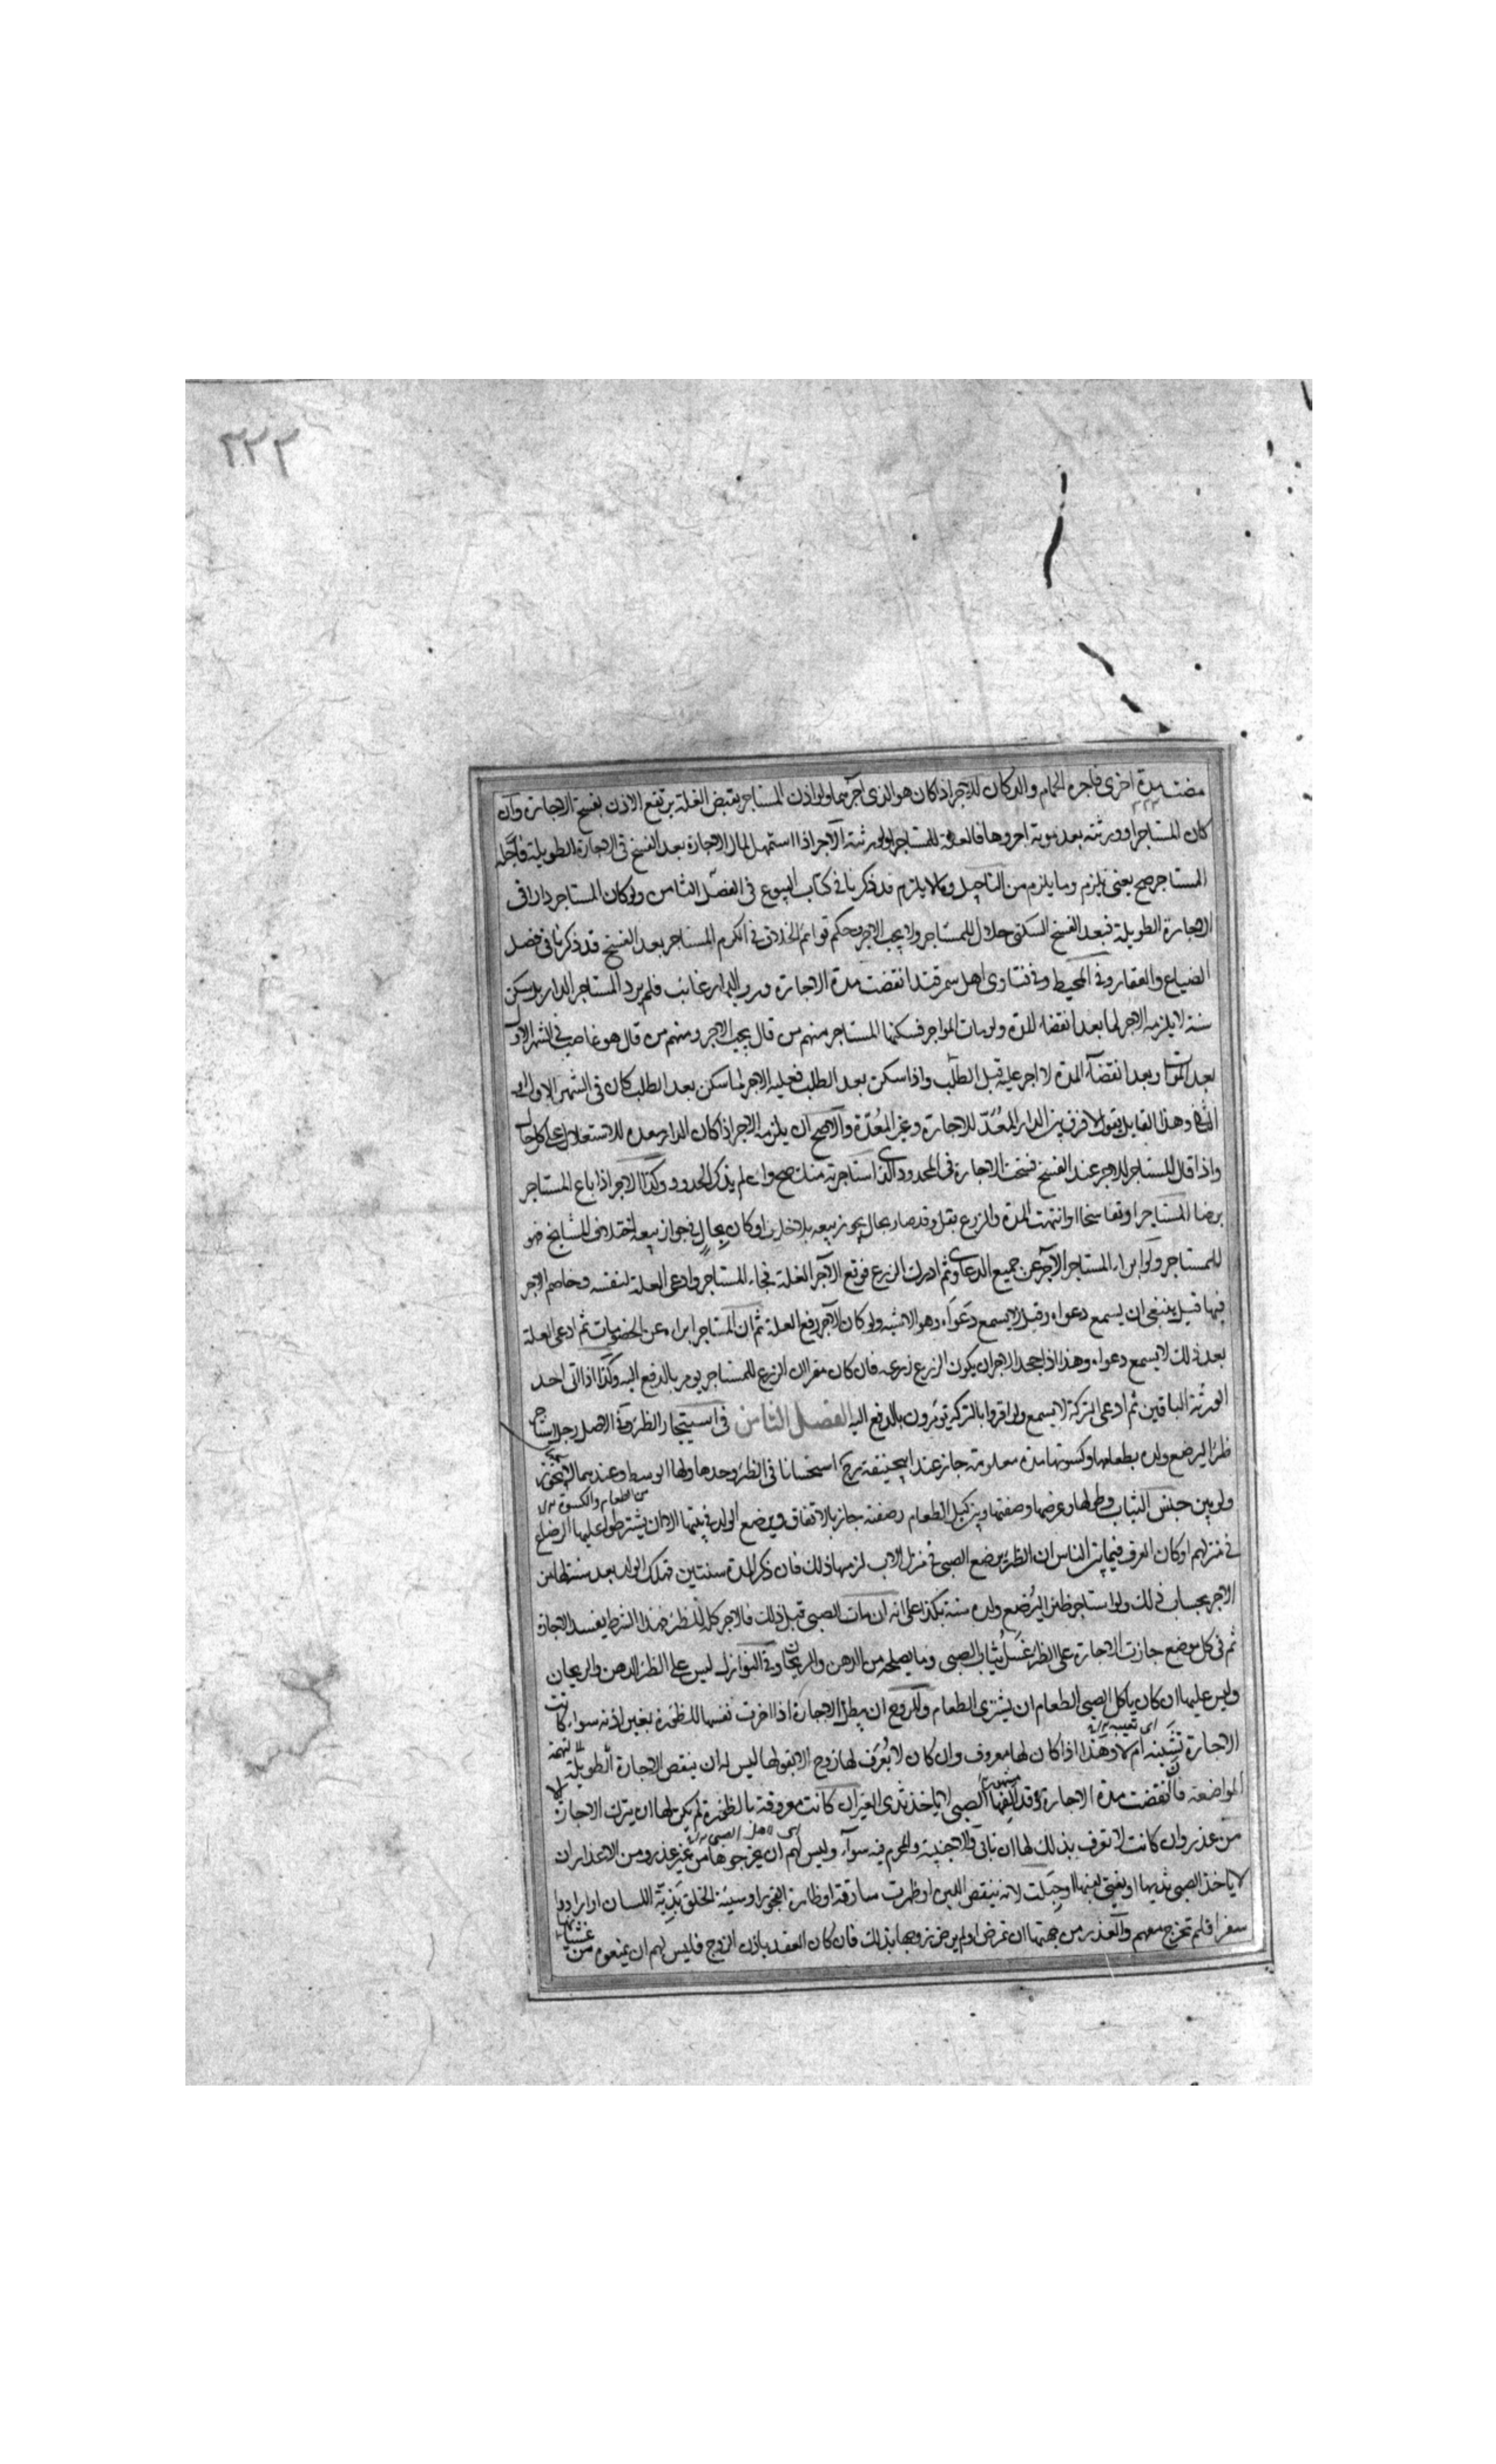 ٣٢٢
مضت مدة اخرى فاجرة الحمام والدكان للاجر اذا كان هو الذى اجرهما ولو اذن المستاجر بقبض الغلة يرتفع الاذن بفسخ الاجارة وان
كان المستاجر او ورثته بعد موته اجروها فالغلة للمستاجر او لورثته الآجر اذا استمهل لمال الاجارة بعد الفسخ فى الاجارة الطويلة فاجله
المستاجر صح يعنى يلزم وما يلزم من التاجيل وما لا يلزم قد ذكرنا فى كتاب البيوع فى الفصل الثامن ولو كان المستاجر دارا فى
الاجارة الطويلة فبعد الفسخ السكنى حلال للمستاجر ولا يجب الاجر وحكم قوائم الخلاف فى الكرم المستاجر بعد الفسخ قد ذكرنا فى فصل
الضياع والعقار وفى المحيط وفى فتاوى اهل سمرقند انقضت مدة الاجارة ورب الدار غائب فلم يرد المستاجر الدار بل سكن
سنة لا يلزمه الاجر لما بعد انقضاء المدة ولو مات المواجر فسكنها المستاجر منهم من قال يجب الاجر ومنهم من قال هو غاصب فى الشهر الاول
بعد الموت وبعد انقضاء المدة لا اجر عليه قبل الطلب واذا سكن بعد الطلب فعليه الاجر لما سكن بعد الطلب كان فى الشهر الاول او
الثانى وهذا القايل يقول لا فرق بين الدار المعدة للاجارة وغير المعدة والاصح ان يلزمه الاجر اذا كان الدار معدة للاستغلال على كل حال
واذا قال المستاجر للاجر عند الفسخ فسخت الاجارة فى المحدود الذى استاجرته منك صح وان لم يذكر الحدود وكذا الاجر اذا باع المستاجر
برضا المستاجر او تفاسخا او انتهت المدة والزرع بقل وقد صار بحال يجوز بيعه بلا خلاف او كان بحال فى جواز بيعه اختلاف المشايخ فهو
للمستاجر ولو ابراء المستاجر الآجر عن جميع الدعاوى ثم ادرك الزرع فرفع الآجر الغلة فجاء المستاجر وادعى الغلة لنفسه وخاصم الاجر
فيها قيل ينبغى ان يسمع دعواه وقيل لا يسمع دعواه وهو الاشبه ولو كان الآجر رفع الغلة ثم ان المستاجر ابراه عن الخصومات ثم ادعى الغلة
بعد ذلك لا يسمع دعواه وهذا اذا جحد الاجر ان يكون الزرع زرعه فان كان مقرا ان الزرع للمستاجر يومر بالدفع اليه وكذا اذا ابرا احد
الورثة الباقين ثم ادعى التركة لا يسمع ولو اقروا بالتركة يؤمرون بالدفع اليه الفصل الثامن فى استيجار الظئر وفى الاصل رجل استاجر
ظئرا ليرضع ولده بطعامها وكسوتها مدة معلومة جاز عند ابيحنيفة رح استحسانا فى الظئر وحدها ولها الوسط وعندهما لا يجوز
من الطعام والكسوة
ولو بين جنس الثياب وطولها وعرضها وصفتها وبين كيل الطعام وصفته جاز بالاتفاق ويرضع الولد فى بيتها الا ان يشترطوا عليها الرضاع
فى منزلهم او كان العرف فيما بين الناس ان الظئر يرضع الصبى فى منزل الاب لزمها ذلك فان ذكر المدة سنتين فهلك الولد بعد سنة لها من
الاجر بحساب ذلك ولو استاجر ظئرا ليرضع ولده سنة بكذا على انه ان مات الصبى قبل ذلك فالاجر كله للظئر فهذا الشرط يفسد الاجارة
ثم فى كل موضع جازت الاجارة على الظئر غسل ثياب الصبى وما يصلحه من الدهن والريحان وفى النوازل ليس على الظئر الدهن والريحان
وليس عليها ان كان ياكل الصبى الطعام ان يشترى الطعام وللزوج ان يبطل الاجارة اذا اجرت نفسها للظئورة بغير اذنه سواء كانت
الاجارة تشينه ام لا وهذا اذا كان لها زوج معروف وان كان لا يعرف لها زوج الا بقولها ليس له ان ينقض الاجارة الطويلة
المواضعة فان انقضت مدة الاجارة وقد الفها الصبى لا ياخذ ثدى الغير ان كانت معروفة بالظئورة لم يكن لها ان يترك الاجارة الا
من عذر وان كانت لا تعرف بذلك لها ان تابى والاجنبية والمحرم فيه سواء وليس لهم ان يخرجوها من غير عذر ومن الاعذار ان
لا ياخذ الصبى ثديها او يقئ لبنها او حبلت لانه ينقص اللبن او ظهرت سارقة او ظاهرة الفجور او سيئة الخلق بذية اللسان او ارادوا
سفرا فلم تخرج معهم والعذر من جهتها ان تمرض او لم يرض زوجها بذلك فان كان العقد باذن الزوج فليس لهم ان يمنعوه من غشيانها